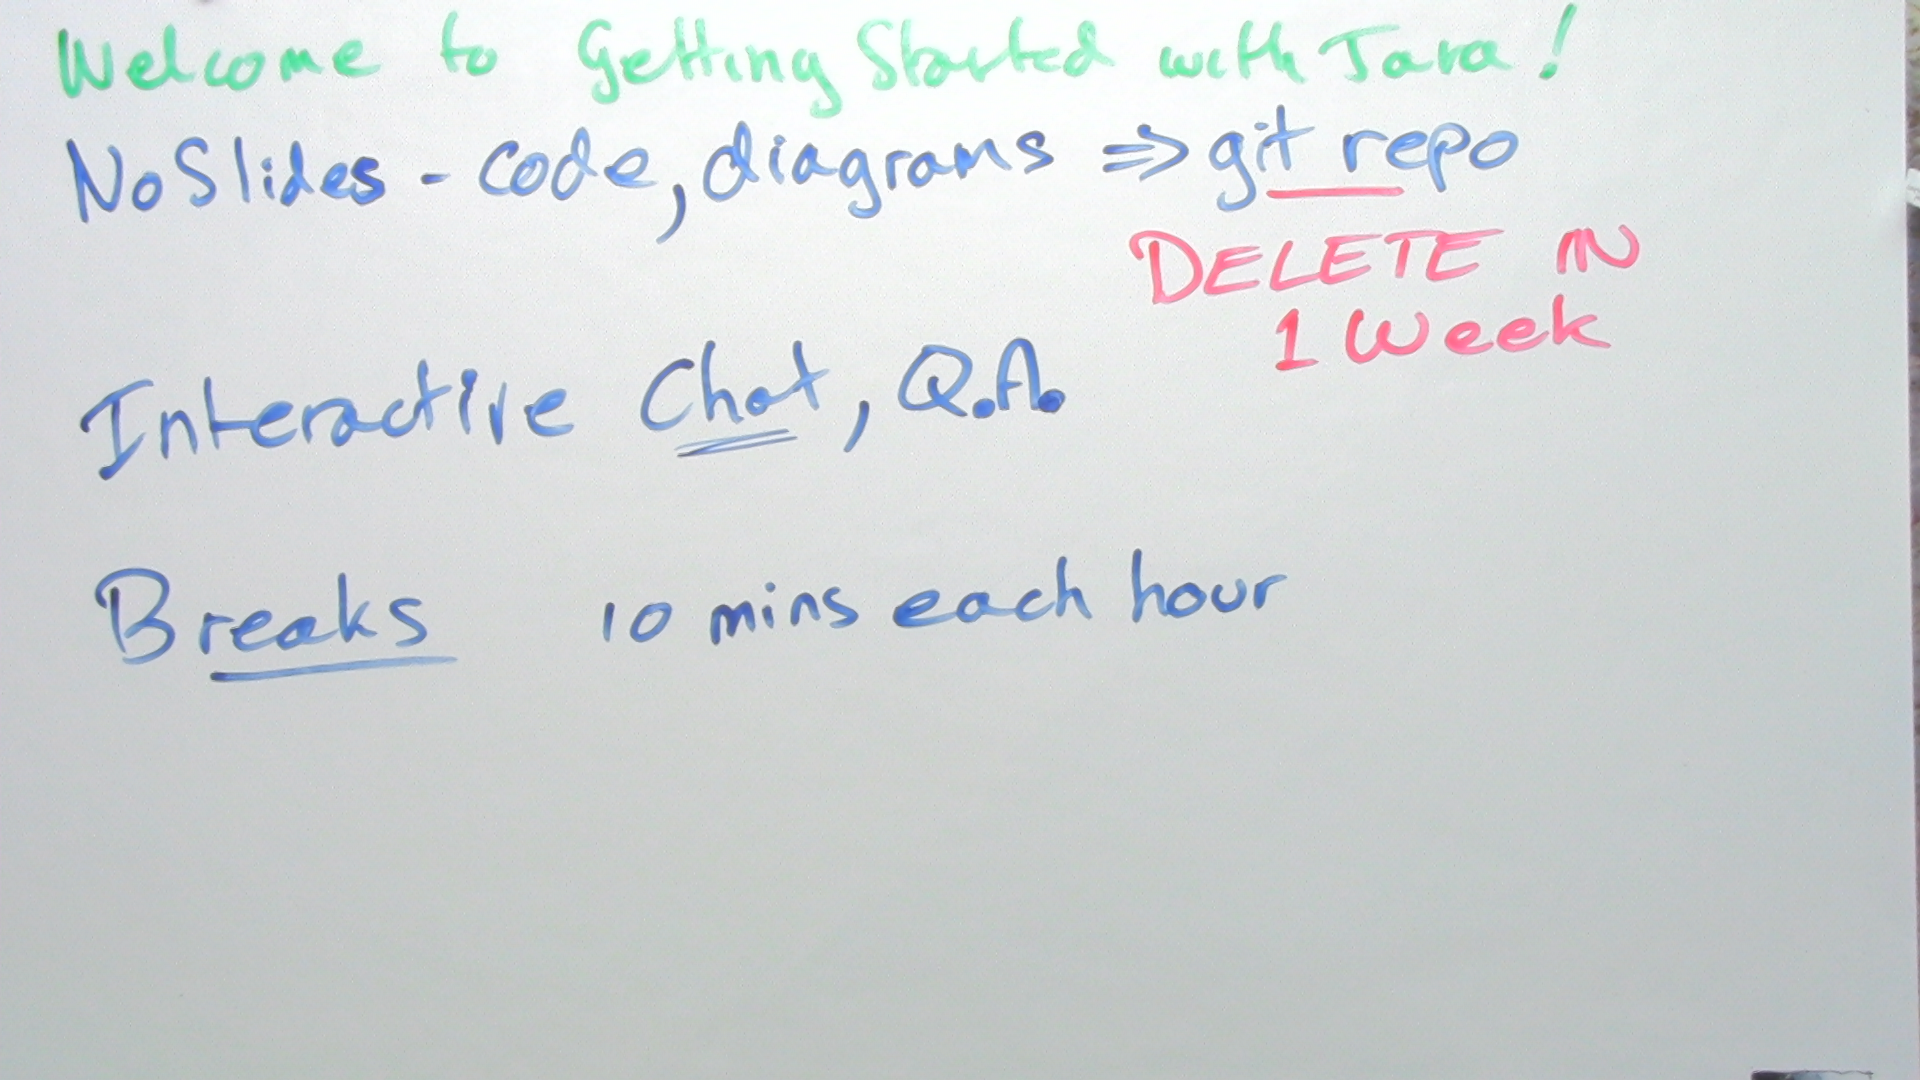 Welcome to Getting Started with Java!
No Slides - code, diagrams ⇒ git repo
DELETE IN
1 Week
Interactive Chat, Q.A.
Breaks 10 mins each hour